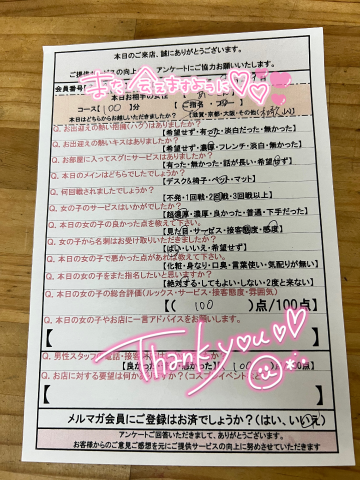 本日のご来店、誠にありがとうございます。
アンケートにご協力お願いいたします。
また会えますように♡♡
会員番号
本日お相手の女性
コース【100】分
本日はどちらからお越しいただきましたか?
Q. お出迎えの熱い抱擁(ハグ)はありましたか?
【希望せず・有った・淡白だった・無かった】
Q. お出迎えの熱いキスはありましたか?
【希望せず・濃厚・フレンチ・淡白・無かった】
Q. お部屋に入ってスグにサービスはありましたか?
【有った・無かった・話が長い・希望せず】
Q. 本日のメインはどちらでしたでしょうか?
【デスク&椅子・ベット・マット】
Q. 何回戦されましたでしょうか?
【不発・1回戦・2回戦・3回戦以上】
Q. 女の子のサービスはいかがでしたか?
【超濃厚・濃厚・良かった・普通・下手だった】
Q. 本日の女の子の良かった点を教えて下さい。
【見た目・サービス・接客態度・感度】
Q. 女の子から名刺はお受け取りいただきましたか?
【はい・いいえ・希望せず】
Q. 本日の女の子で悪かった点があれば教えて下さい。
【化粧・身なり・口臭・言葉使い・気配りが無い】
Q. 本日の女の子をまた指名したいと思いますか?
【絶対する・してもよい・しない・2度と来ない】
Q. 本日の女の子の総合評価(ルックス・サービス・接客態度・雰囲気)
【(100)点/100点】
Q. 本日の女の子やお店に一言アドバイスをお願いします。
【】
Thank you♡♡
Q. 男性スタッフ
Q. お店に対する要望は何か
【】
メルマガ会員にご登録はお済でしょうか?(はい、いいえ)
アンケートご回答いただきまして、ありがとうございます。
お客様からのご意見ご感想を元にご提供サービスの向上に努めさせていただきます